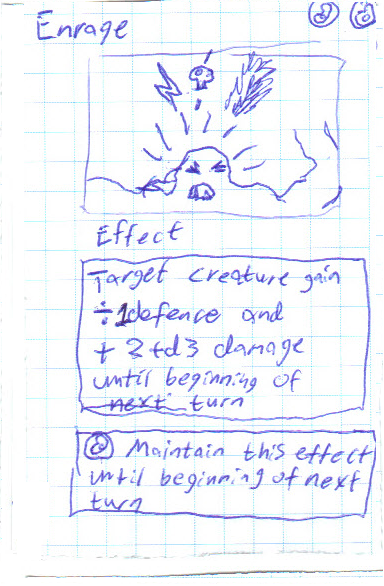 Enrage
Effect
Target creature gain
÷1 defence and
+ 2+d3 damage
until beginning of
next turn
Maintain this effect
until beginning of next
turn